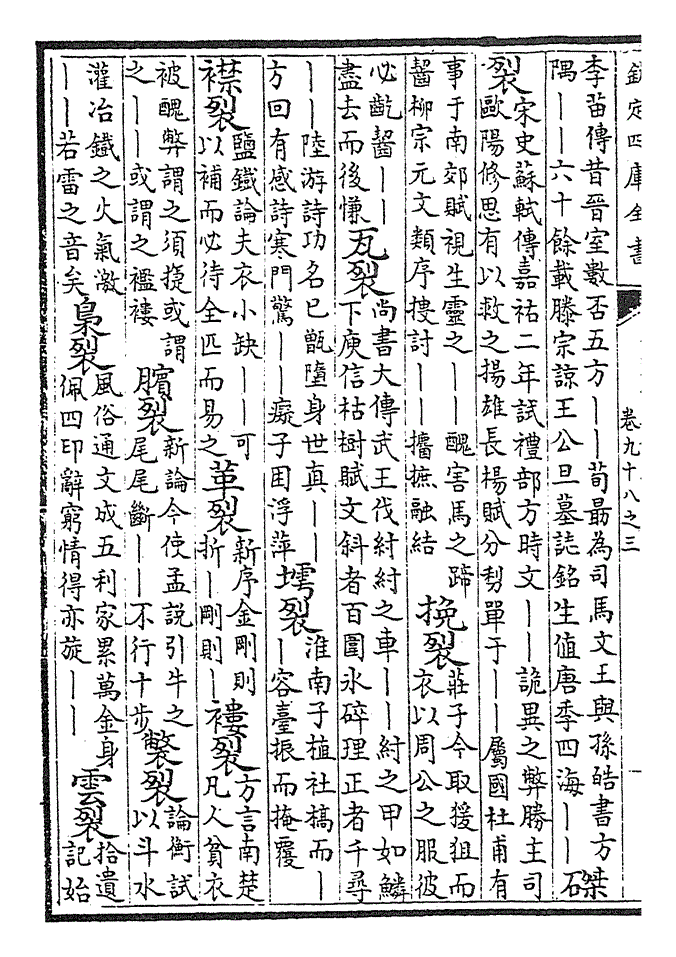 欽定四庫全書 卷九十八之三
李苗傳昔晉室數否五方——荀朂為司馬文王與孫皓書方
隅——六十餘載滕宗諒王公旦墓誌銘生值唐季四海——
磔
裂
宋史蘇軾傳嘉祐二年試禮部方時文——詭異之弊勝主司
歐陽修思有以救之揚雄長楊賦分剺單于——屬國杜甫有
事于南郊賦視生靈之——醜害馬之蹄
齧柳宗元文類序捜討——攟摭融結
挽裂
莊子今取猨狙而
衣以周公之服彼
必齕齧——
盡去而後慊
瓦裂
尚書大傳武王伐紂紂之車——紂之甲如鱗
下庾信枯樹賦文斜者百圍氷碎理正者千尋
——陸游詩功名已甑墮身世真——
方回有感詩寒門驚——癡子困浮萍
壖裂
淮南子植社槁而—
—容臺振而掩覆
襟裂
鹽鐵論夫衣小缺——可
以補而必待全匹而易之
革裂
新序金剛則
折—剛則—
褸裂
方言南楚
凡人貧衣
被醜弊謂之須㨗或謂
之——或謂之襤褸
臏裂
新論今使孟說引牛之
尾尾斷——不行十步
裂
論衡試
以斗水
灌冶鐵之火氣激
——若雷之音矣
梟裂
風俗通文成五利家累萬金身
佩四印辭窮情得亦旋——
雲裂
拾遺
記始